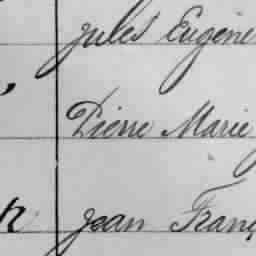 Jules Eugène
Pierre Marie
Jean Franç